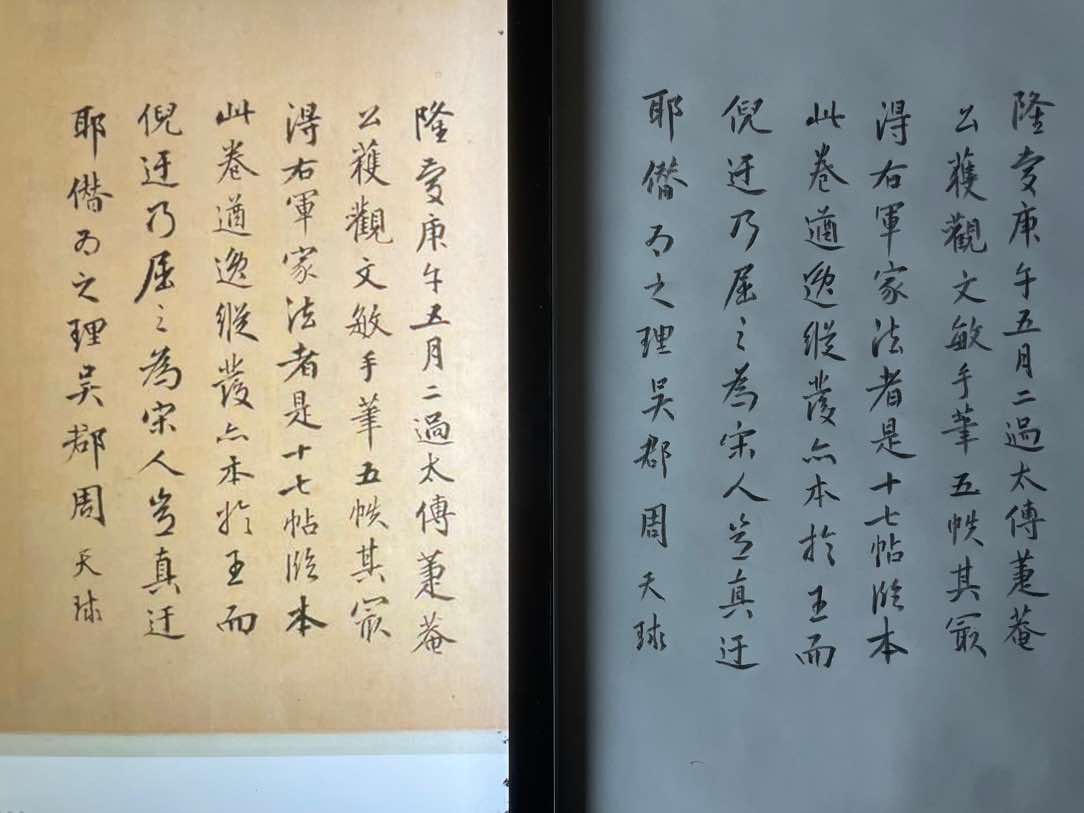 隆慶庚午五月二過太傅菴
公獲觀文敏手筆五帙其冣
得右軍家法者是十七帖臨本
此卷遒逸縱發亦本於王而
倪迂乃屈之為宋人豈真迂
耶僭為之理吳郡周天球
隆慶庚午五月二過太傅菴
公獲觀文敏手筆五帙其冣
得右軍家法者是十七帖臨本
此卷遒逸縱發亦本於王而
倪迂乃屈之為宋人豈真迂
耶僭為之理吳郡周天球